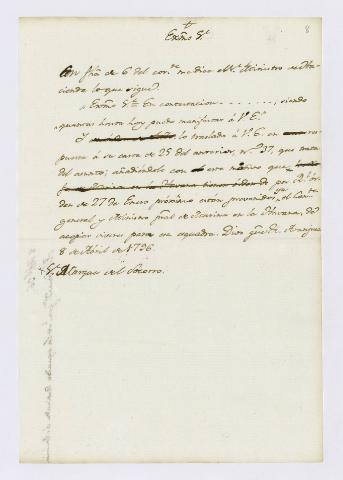 8
†
Exmo Sr.
Con fha de 6 del corte. me dice el Sr. Ministro de Ha-
cienda lo que sigue.
"Exmo Sr. = En contestacion - - - - - -, siendo
quanto hasta hoy puedo manifestar á V.E."
Y lo traslado á V.E. en res-
puesta á su carta de 25 del anterior, nº 27, que trata
del asunto; añadiendole con este motivo que
por Rl. ór-
den de 27 de Enero proximo estan prevenidos el Comte.
general, y Ministro pral. de Marina en la Havana, de
acopiar viveres para esa esquadra. Dios gue. &c. Aranjuez
8 de Abril de 1796.
Sr. Marques del Socorro.